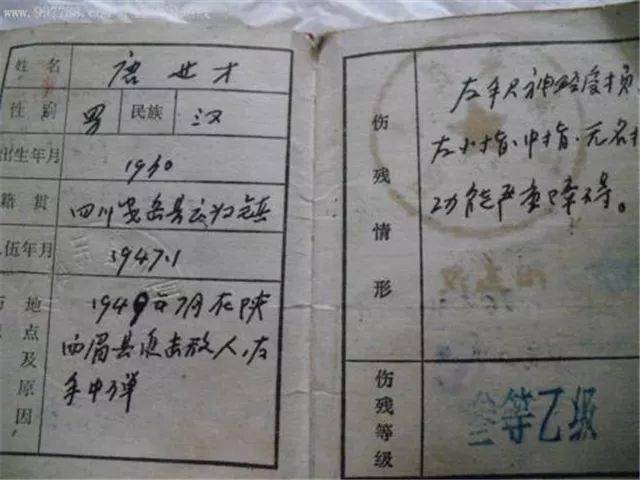 www.997788.com
姓名 唐世才
性别 男 民族 汉
出生年月 1930
籍贯 四川安岳县云归镇
伍年月 1947.1
地点及原因
1949年7月在陕
西眉县追击敌人,左
手中弹
伤残情形
左手尺神经受损
左小指、中指、无名指
功能严重障碍。
伤残等级 叁等乙级